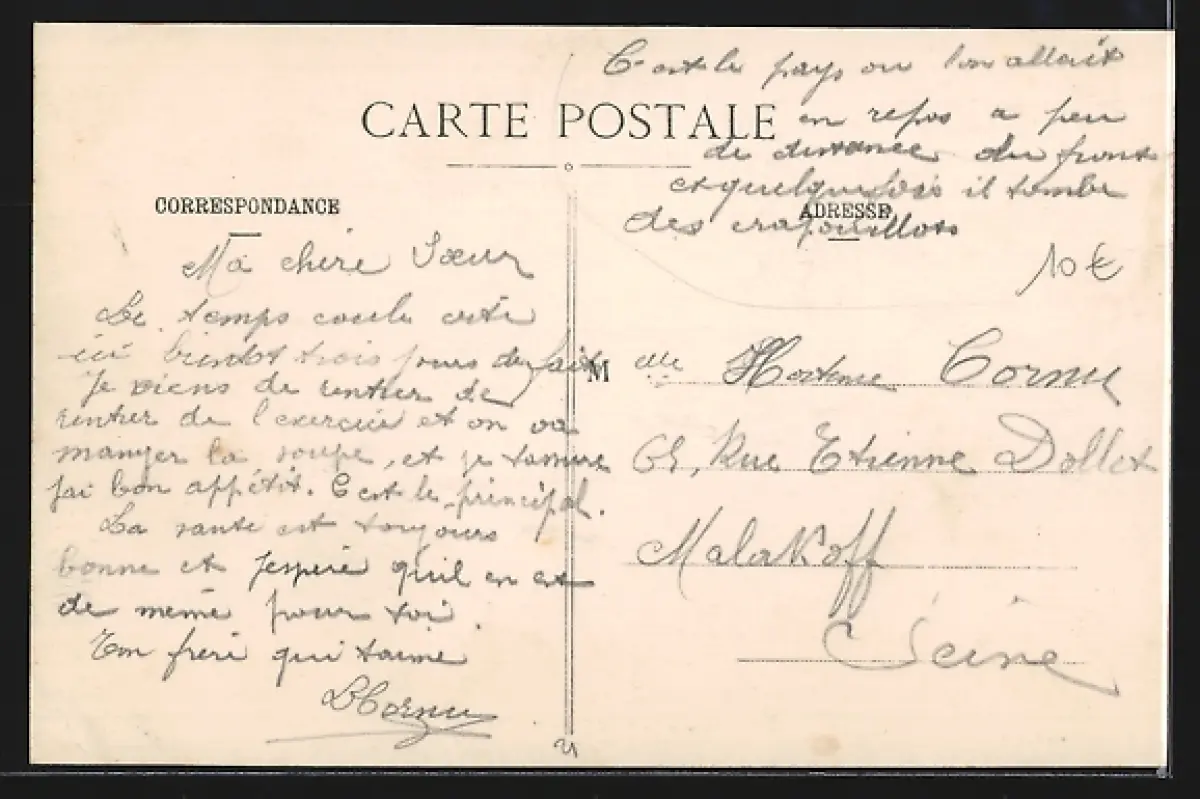 C'est le pays ou l'on allait
en repos a peu
de distance du front
et quelquefois il tombe
des crapouillots
CARTE POSTALE
CORRESPONDANCE
ADRESSE
10 €
Ma chère Sœur
Le temps coule vite
ici bientot trois jours de fait
Je viens de rentrer de
rentrer de l'exercice et on va
manger la soupe, et je t'assure
j'ai bon appétit. C'est le principal.
La santé est toujours
bonne et j'espère qu'il en est
de même pour toi.
Ton frère qui t'aime
L Cornu
M elle Hortense Cornu
68, Rue Etienne Dollet
Malakoff
Seine
21